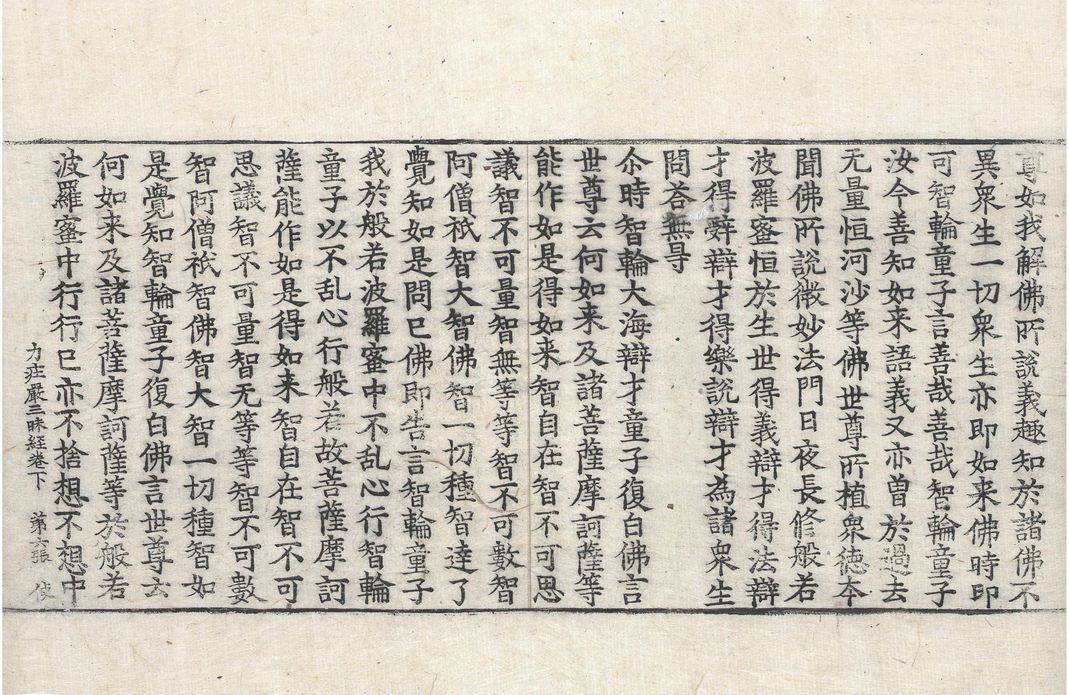 尊如我解佛所說義趣知於諸佛不
異衆生一切衆生亦即如来佛時即
可智輪童子言善哉善哉智輪童子
汝今善知如来語義又亦曽於過去
无量恒河沙等佛世尊所植衆德本
聞佛所說微妙法門日夜長修般若
波羅蜜恒於生世得義辯才得法辯
才得辤辯才得樂說辯才為諸衆生
問荅無㝵
尒時智輪大海辯才童子復白佛言
世尊云何如来及諸菩薩摩訶薩等
能作如是得如来智自在智不可思
議智不可量智無等等智不可數智
阿僧祇智大智佛智一切種智達了
覺知如是問已佛即告言智輪童子
我於般若波羅蜜中不乱心行智輪
童子以不乱心行般若故菩薩摩訶
薩能作如是得如来智自在智不可
思議智不可量智无等等智不可數
智阿僧祇智佛智大智一切種智如
是覺知智輪童子復白佛言世尊云
何如来及諸菩薩摩訶薩等於般若
波羅蜜中行行已亦不捨想不想中
力庄嚴三昧経卷下 第六張 俊